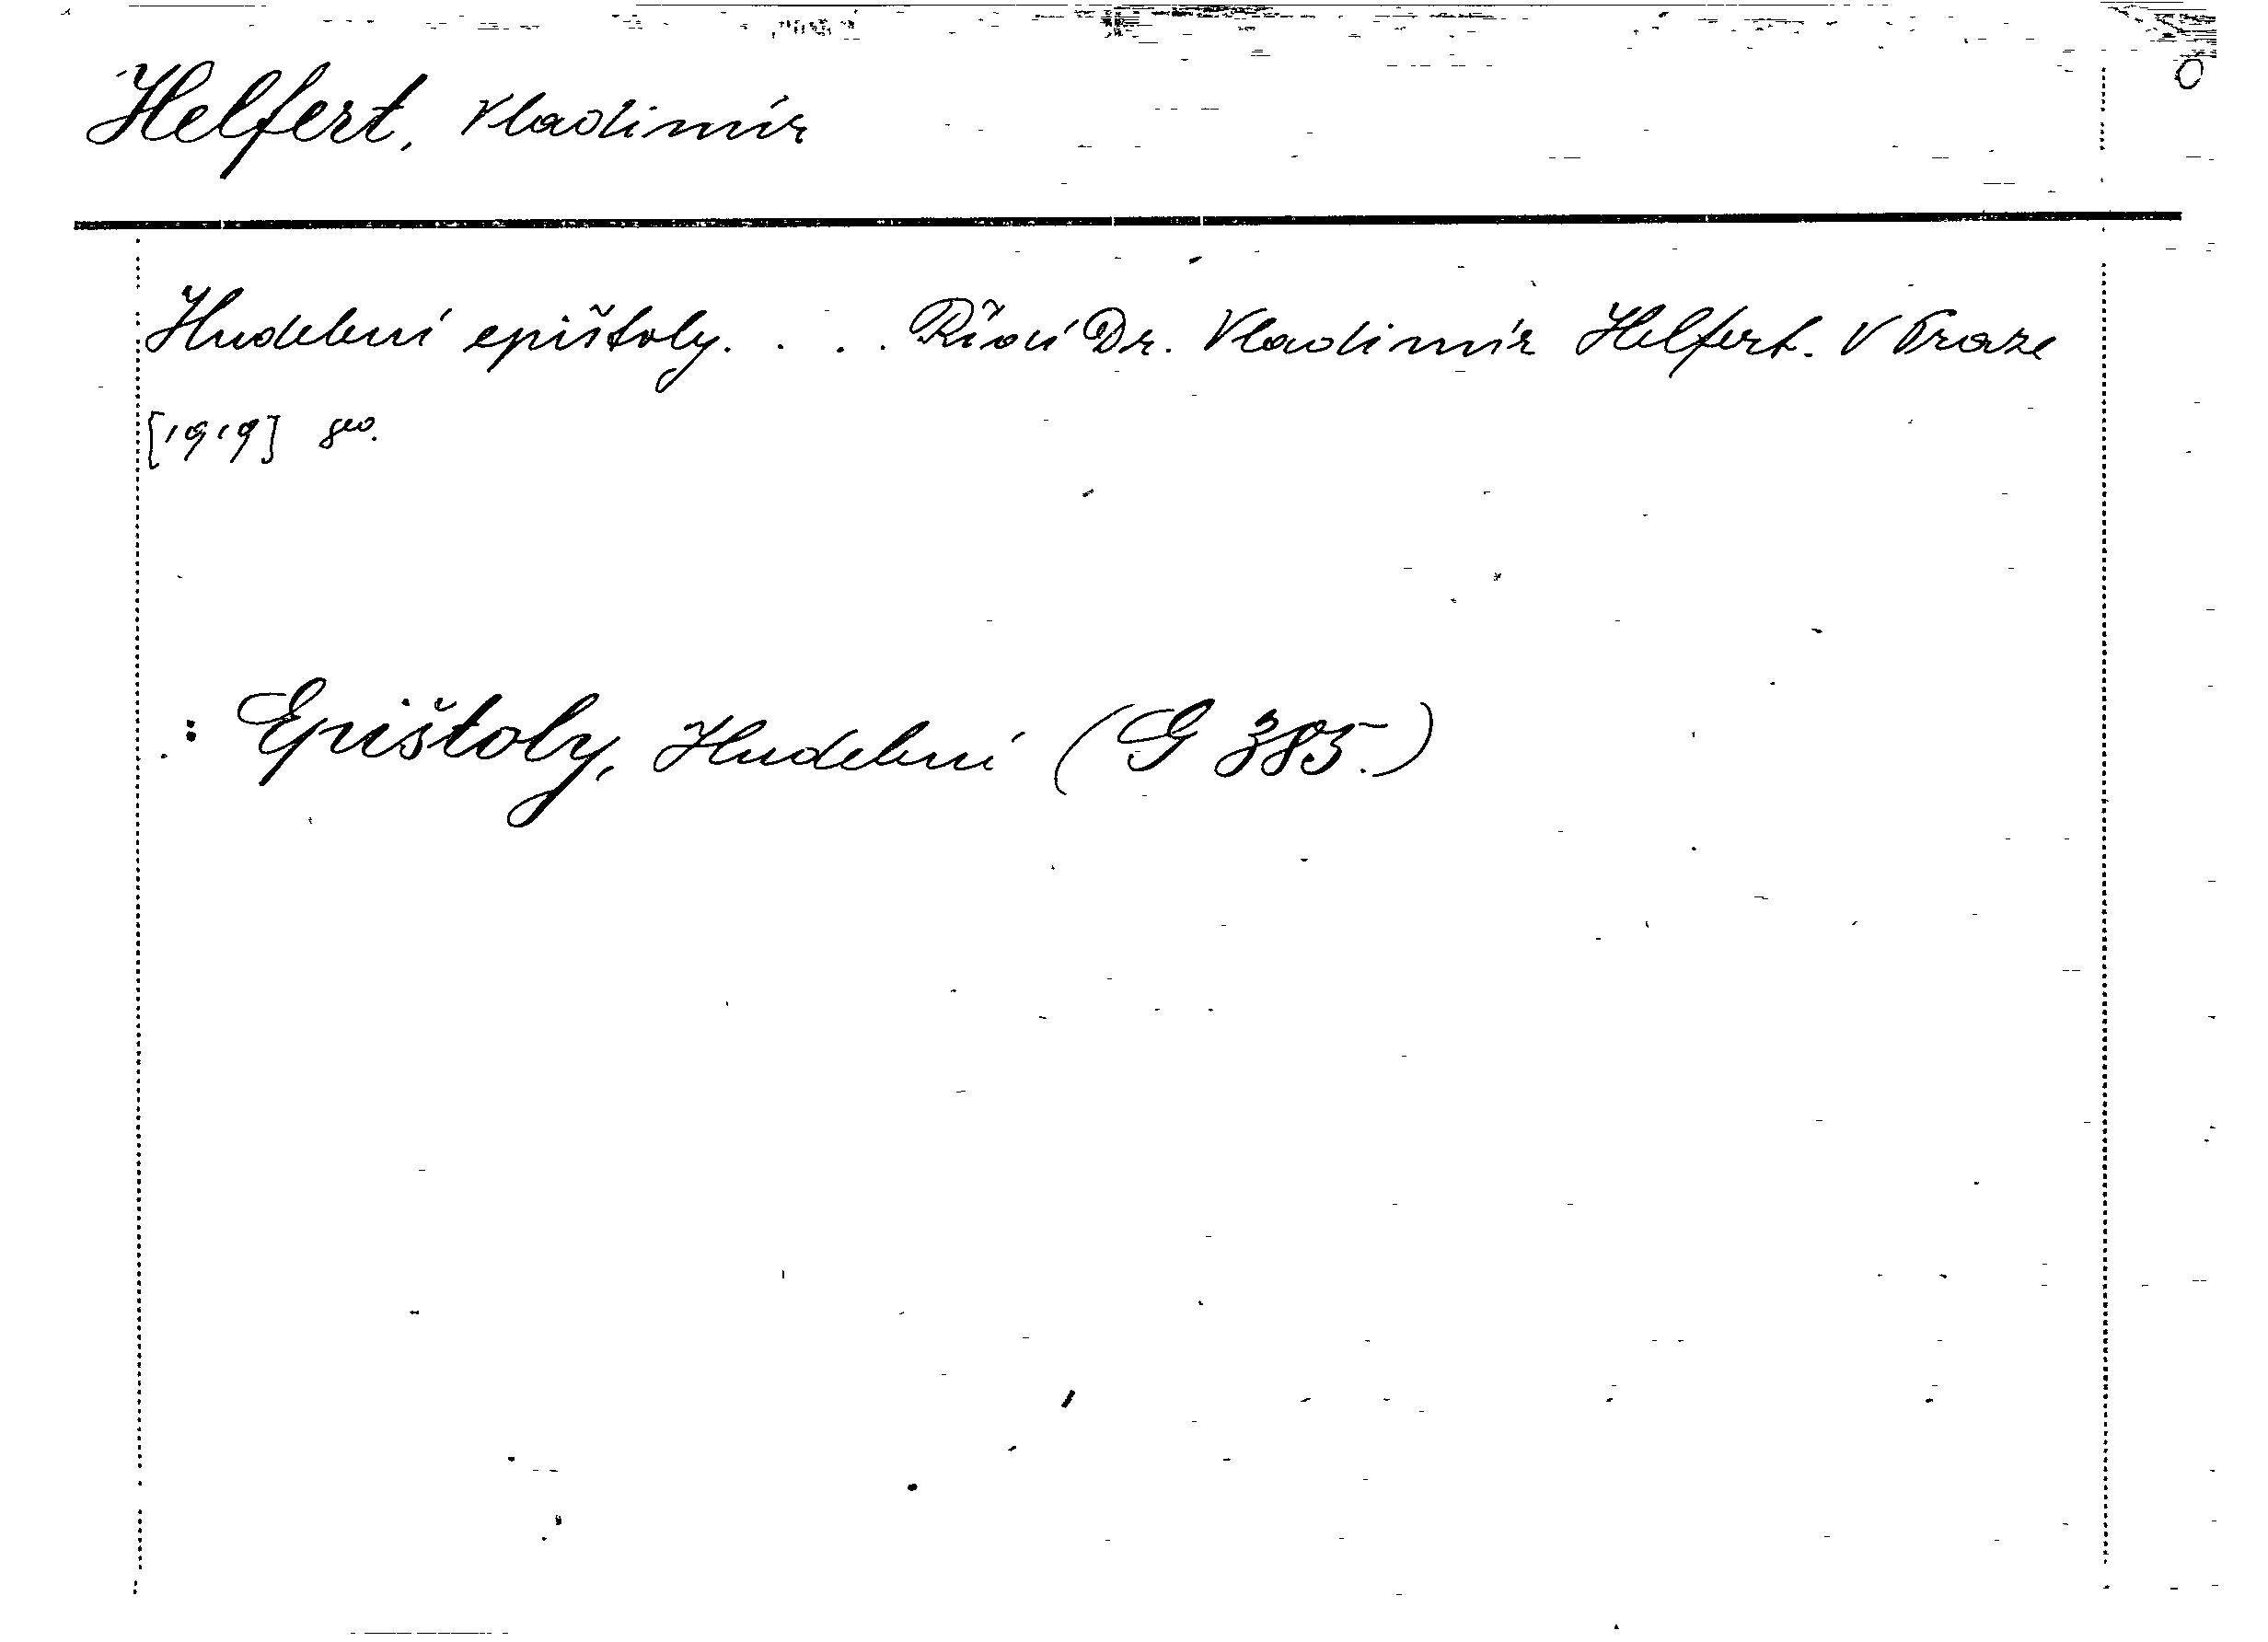 Helfert, Vladimír
Hudební epištoly. . . . Řídí Dr. Vladimír Helfert. V Praze
[1919] 8vo.
: Epištoly, Hudební (G 385.)